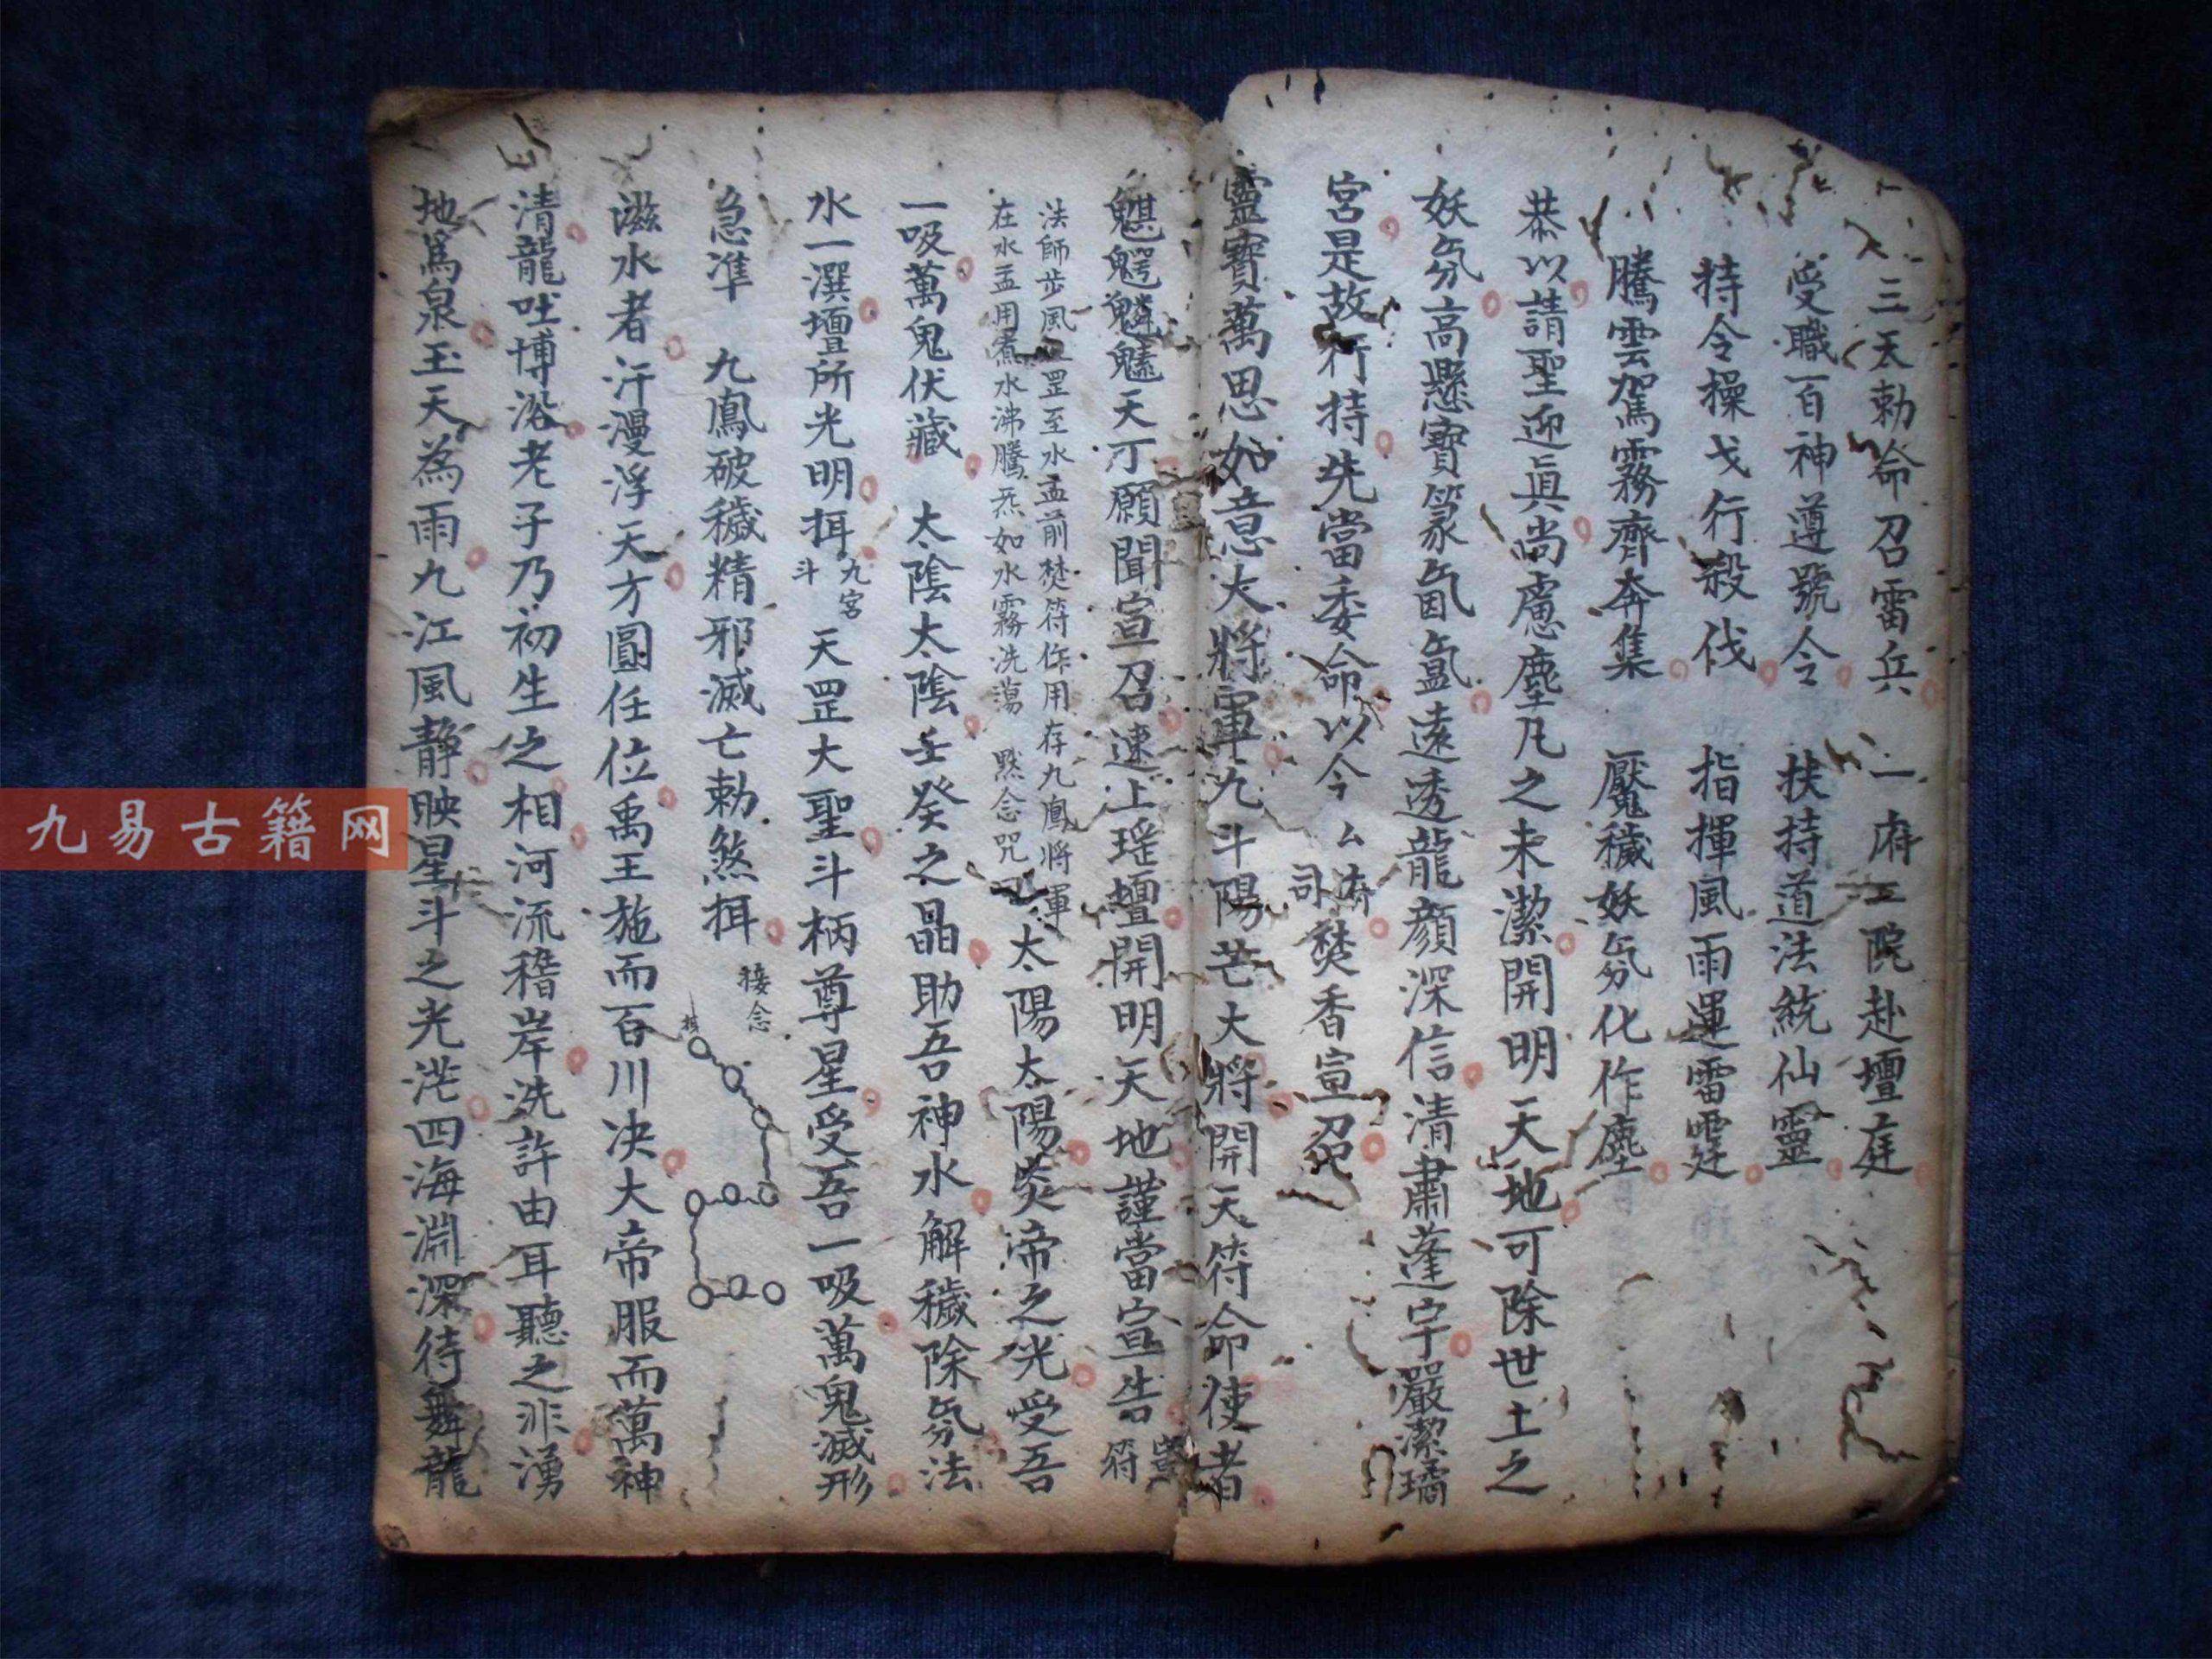 三天勅命召雷兵 一府三院赴壇庭
受職百神遵號令 扶持道法統仙靈
持令操戈行殺伐 指揮風雨運雷霆
騰雲駕霧齊奔集 魘穢妖氛化作塵
恭以請聖迎眞尚慮塵凡之未潔開明天地可除世土之
妖氛高懸寶篆氤氳遠透龍顔深信清肅蓬宇嚴潔璚
宮是故行持先當委命以今 厶 法司 焚香宣召
靈寶萬思如意大將軍九斗陽芒大將開天符命使者
天丁願聞宣召速上瑶壇開明天地謹當宣告 宣符
法師步風 罡至水盂前焚符作用存九鳳將軍
在水盂用煮水沸騰炁如水霧洗蕩 默念咒
太陽太陽炎帝之光受吾
一吸萬鬼伏藏 太陰太陰壬癸之晶助吾神水解穢除氛法
水一潠壇所光明揖 九宮斗 天罡大聖斗柄尊星受吾一吸萬鬼滅形
急準 九鳳破穢精邪滅亡勅煞揖 接念
滋水者汗漫浮天才圓任位禹王施而百川决大帝服而萬神
清龍吐博浴老子乃初生之相河流稽岸洗許由耳聽之非湧
地爲泉玉天為雨九江風静映星斗之光茫四海淵深待舞龍
九易古籍网